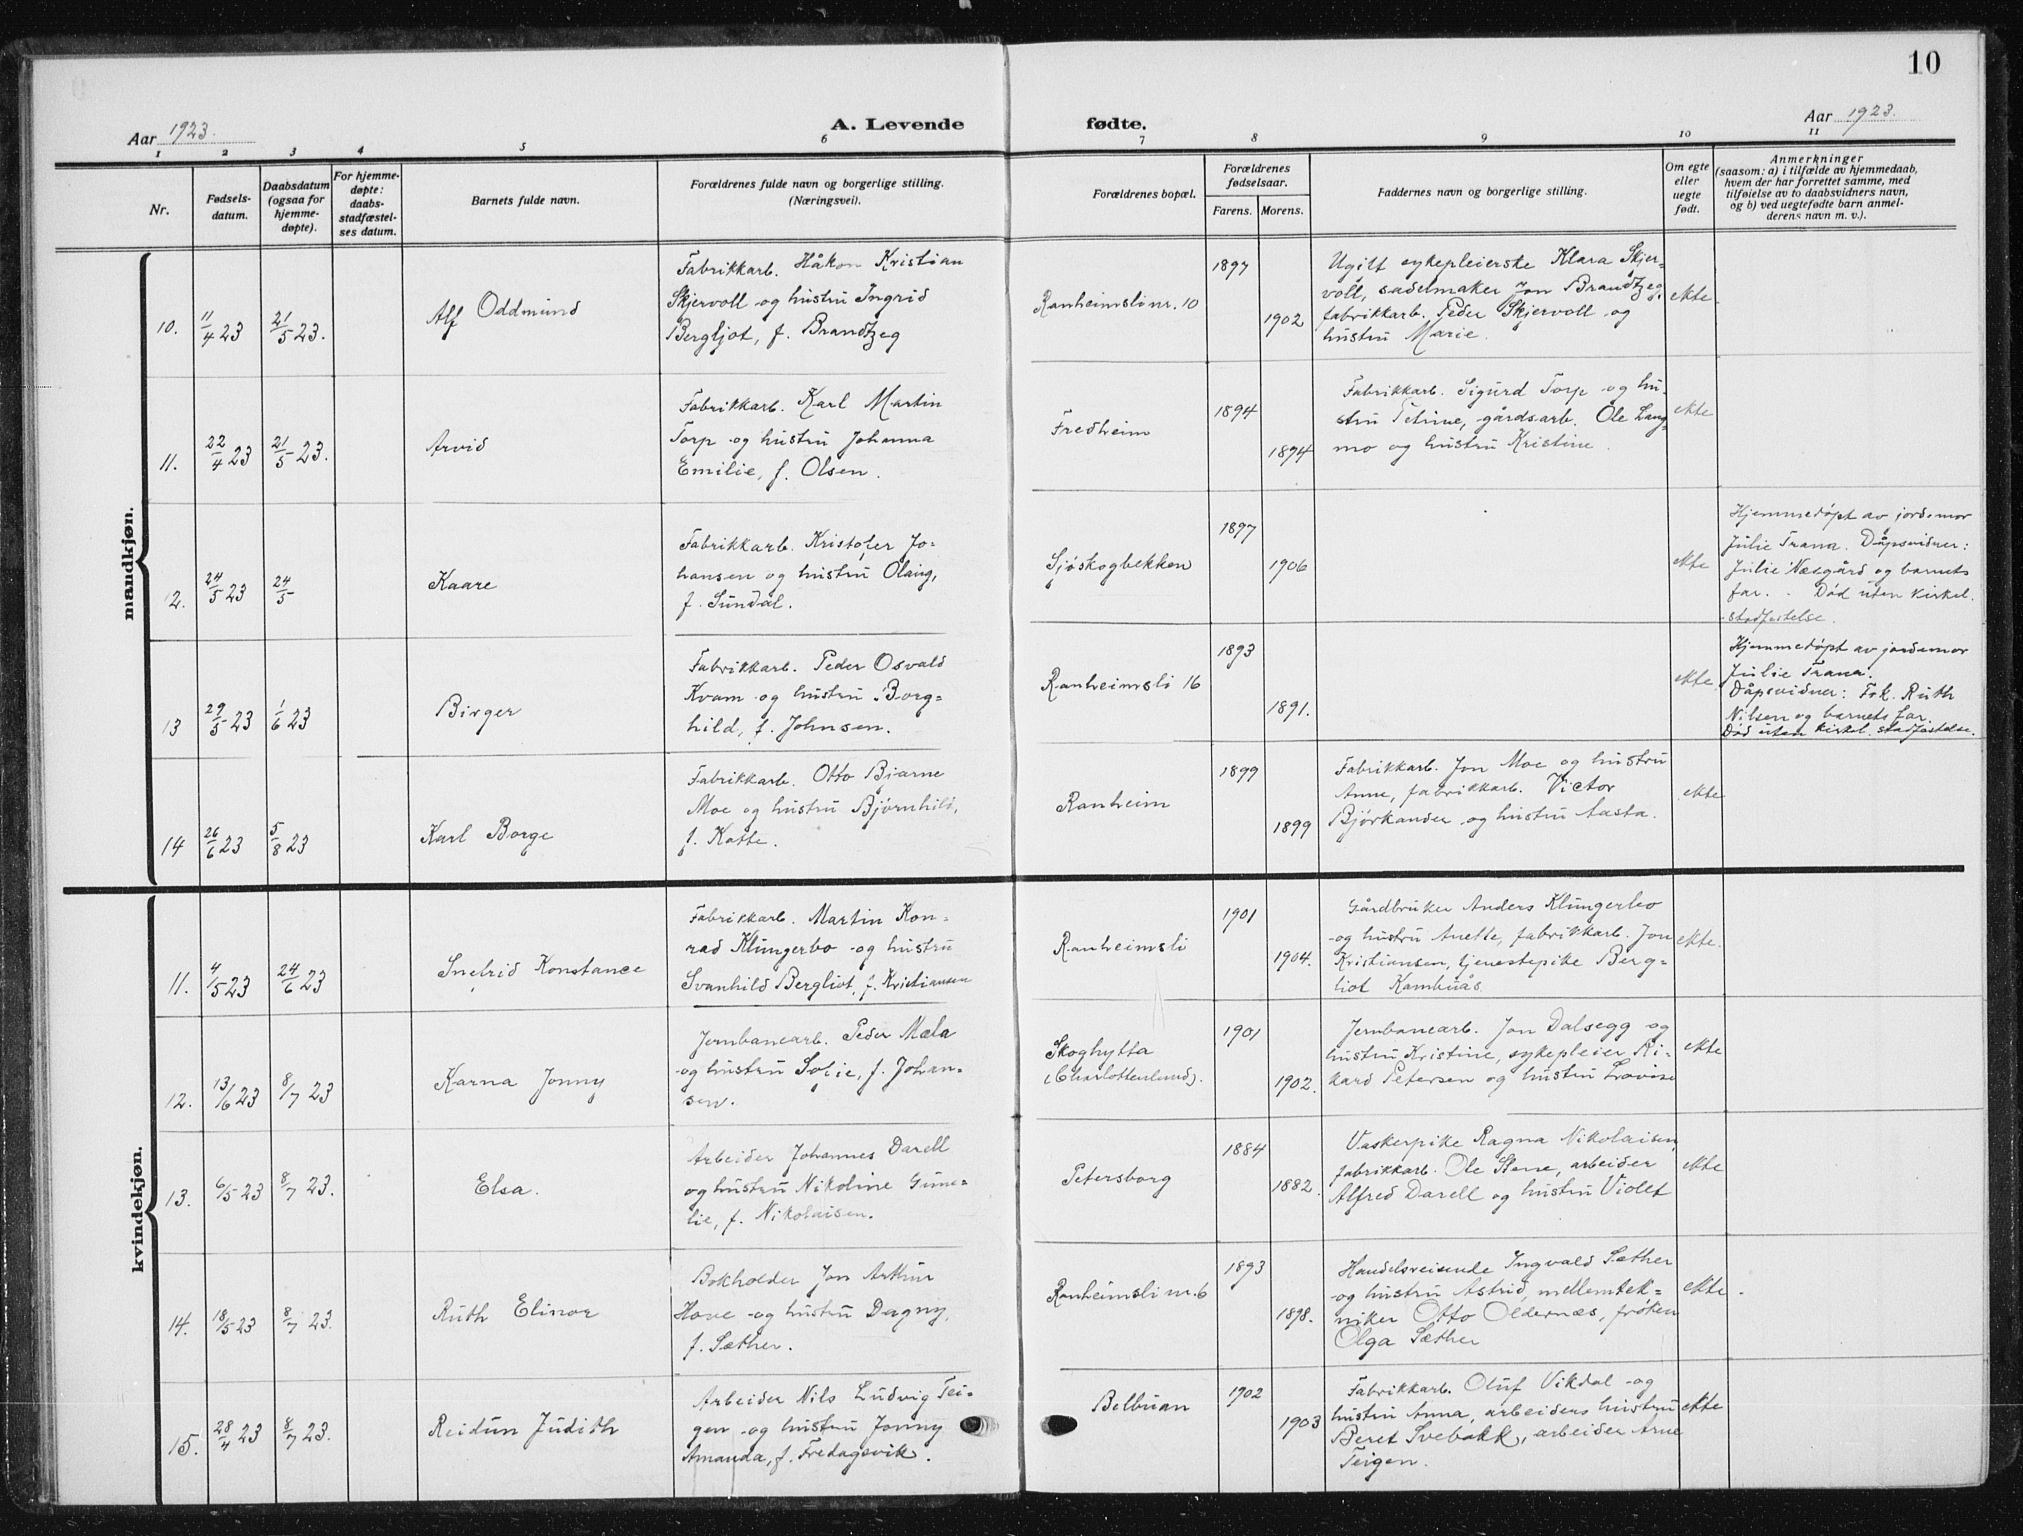 10
Aar 1923.
A. Levende
fødte.
Aar 1923.
1 2 3 4 5 6 7 8 9 10 11
Nr.
Fødsels-
datum.
Daabsdatum
(ogsaa for
hjemme-
døpte).
For hjemme-
døpte:
daabs-
stadfæstel-
ses datum.
Barnets fulde navn.
Forældrenes fulde navn og borgerlige stilling.
(Næringsvei).
Forældrenes bopæl.
Forældrenes
fødselsaar.
Farens. Morens.
Faddernes navn og borgerlige stilling.
Om egte
eller
uegte
født.
Anmerkninger
(saasom: a) i tilfælde av hjemmedaab,
hvem der har forrettet samme, med
tilføielse av to daabsvidners navn,
og b) ved uegtefødte barn anmel-
derens navn m. v.).
mandkjøn.
10.
11/4 23
21/5 23.
Alf Oddmund
Fabrikkarb. Håkon Kristian
Skjervoll og hustru Ingrid
Bergljot, f. Brandtzeg
Ranheimsli nr. 10
1897
1902
Ugift sykepleierske Klara Skjer-
voll, sadelmaker Jon Brandtzeg,
fabrikkarb. Peder Skjervoll og
hustru Marie.
ekte
11.
22/4 23
21/5 23.
Arvid
Fabrikkarb. Karl Martin
Torp og hustru Johanna
Emilie, f. Olsen.
Fredheim
1894
1894
Fabrikkarb. Sigurd Torp og hu-
stru Petrine, gårdsarb. Ole Lang-
mo og hustru Kristine.
ekte
12.
24/5 23
24/5
Kaare
Fabrikkarb. Kristofer Jo-
hansen og hustru Olaug,
f. Sundal.
Sjøskogbekken
1897
1906
ekte
Hjemmedøpt av jordemor
Julie Trana. Dåpsvidner:
Julie Næsgård og barnets
far. Død uten kirkel.
stadfestelse.
13
29/5 23
1/6 23
Birger
Fabrikkarb. Peder Osvald
Kvam og hustru Borg-
hild, f. Johnsen.
Ranheimsli 16
1893
1891.
ekte
Hjemmedøpt av jordemor
Julie Trana.
Dåpsvidner: Frk. Ruth
Nilsen og barnets far.
Død uten kirkel. stadfestelse.
14
26/6 23
5/8 23
Karl Borge
Fabrikkarb. Otto Bjarne
Moe og hustru Bjørnhild,
f. Kotte.
Ranheim
1899
1899
Fabrikkarb. Jon Moe og hustru
Anne, fabrikkarb. Victor
Bjørkander og hustru Aasta.
ekte
kvindekjøn.
11.
4/5 23
24/6 23
Snefrid Konstance
Fabrikkarb. Martin Kon-
rad Klungerbo og hustru
Svanhild Bergliot, f. Kristiansen
Ranheimsli
1901
1904.
Gårdbruker Anders Klungerbo
og hustru Anette, fabrikkarb. Jon
Kristiansen, tjenestepike Berg-
liot Kambuås
ekte.
12.
13/6 23
8/7 23
Karna Jonny
Jernbanearb. Peder Mæla
og hustru Sofie, f. Johan-
sen.
Skoghytta
(Charlottenlund).
1901
1902.
Jernbanearb. Jon Dalsegg og
hustru Kristine, sykepleier Ri-
kard Petersen og hustru Lovise
ekte
13.
6/5 23
8/7 23.
Elsa.
Arbeider Johannes Darell
og hustru Nikoline Gune-
lie, f. Nikolaisen.
Petersborg
1884
1882.
Vaskerpike Ragna Nikolaisen,
fabrikkarb. Ole Stene, arbeider
Alfred Darell og hustru Violet
ekte
14.
18/5 23
8/7 23.
Ruth Elinor
Bokholder Jon Arthur
Hove og hustru Dagny,
f. Sæther.
Ranheimsli nr. 6
1893
1898.
Handelsreisende Ingvald Sæther
og hustru Astrid, mellemtek-
niker Otto Oldernæs, frøken
Olga Sæther
ekte.
15.
28/4 23
8/7 23.
Reidun Judith
Arbeider Nils Ludvig Tei-
gen og hustru Jonny
Amanda, f. Fredagsvik.
Belbuan
1902
1903
Fabrikkarb. Oluf Vikdal og
hustru Anna, arbeiders hustru
Beret Svebakk, arbeider Arne
Teigen.
ekte